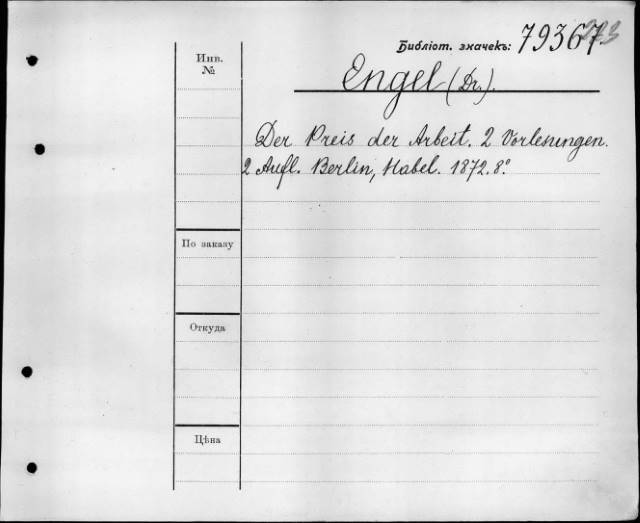 Библіот. значекъ: 79367
Инв.
№
Engel (Dr.).
Der Preis der Arbeit. 2 Vorlesungen.
2 Aufl. Berlin, Habel. 1872. 8°.
По заказу
Откуда
Цѣна